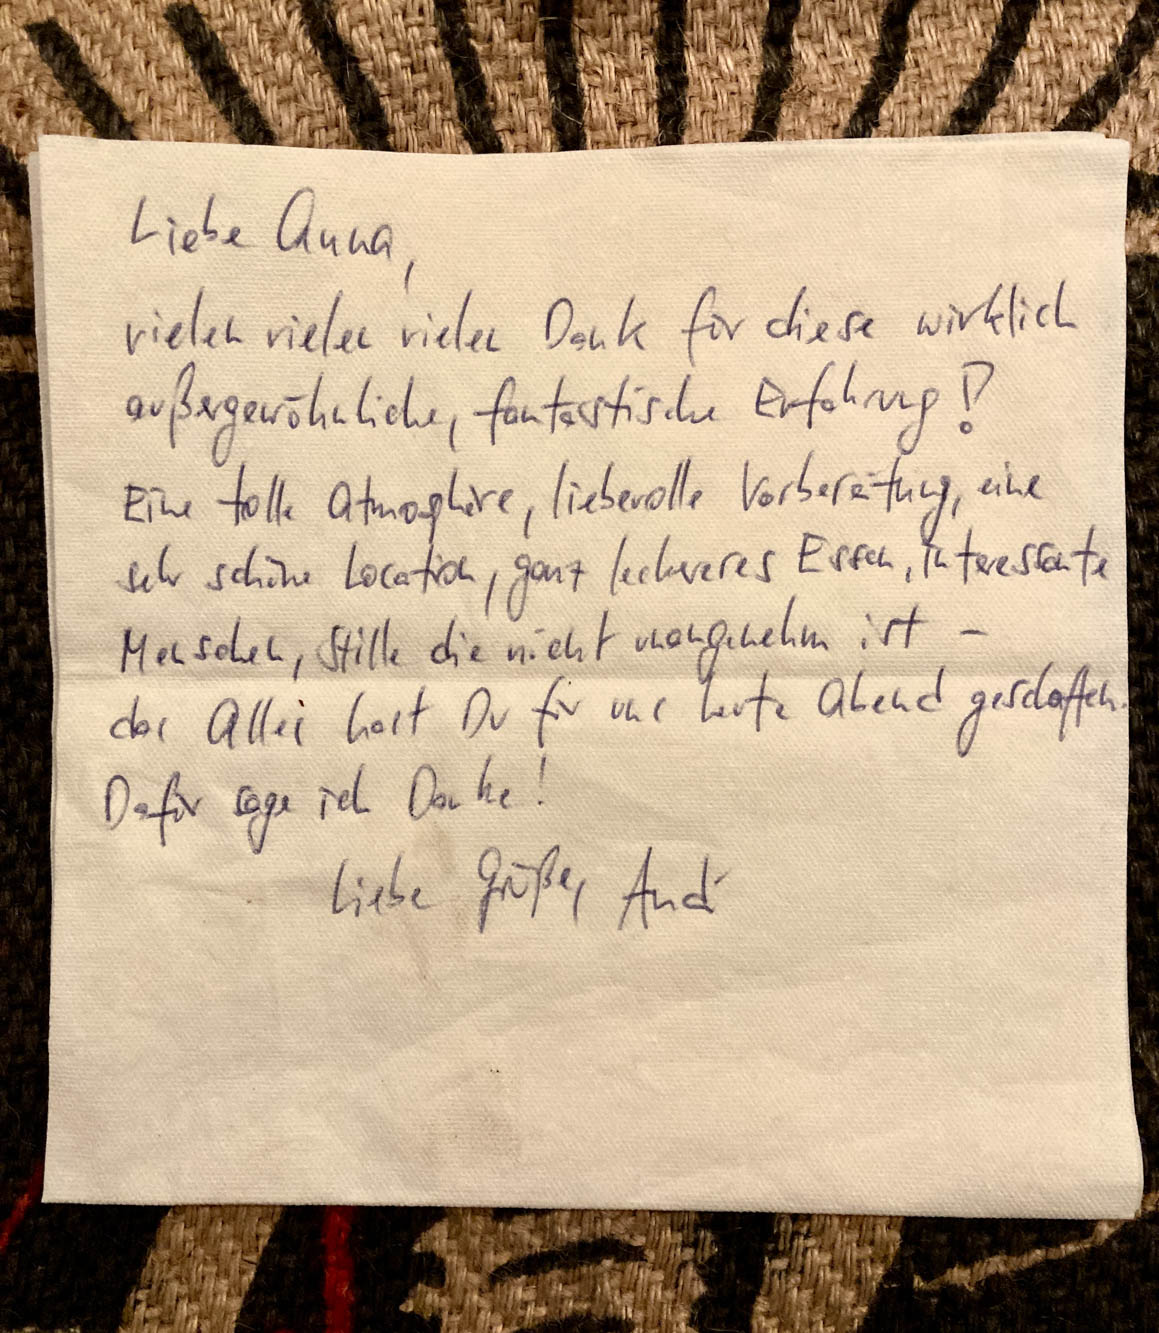 Liebe Anna,
vielen vielen vielen Dank für diese wirklich
außergewöhnliche, fantastische Erfahrung!
Eine tolle Atmosphäre, liebevolle Vorbereitung, eine
sehr schöne Location, ganz leckeres Essen, interessante
Menschen, Stille die nicht unangenehm ist –
das Alles hast Du für uns heute Abend geschaffen.
Dafür sage ich Danke!
Liebe Grüße,